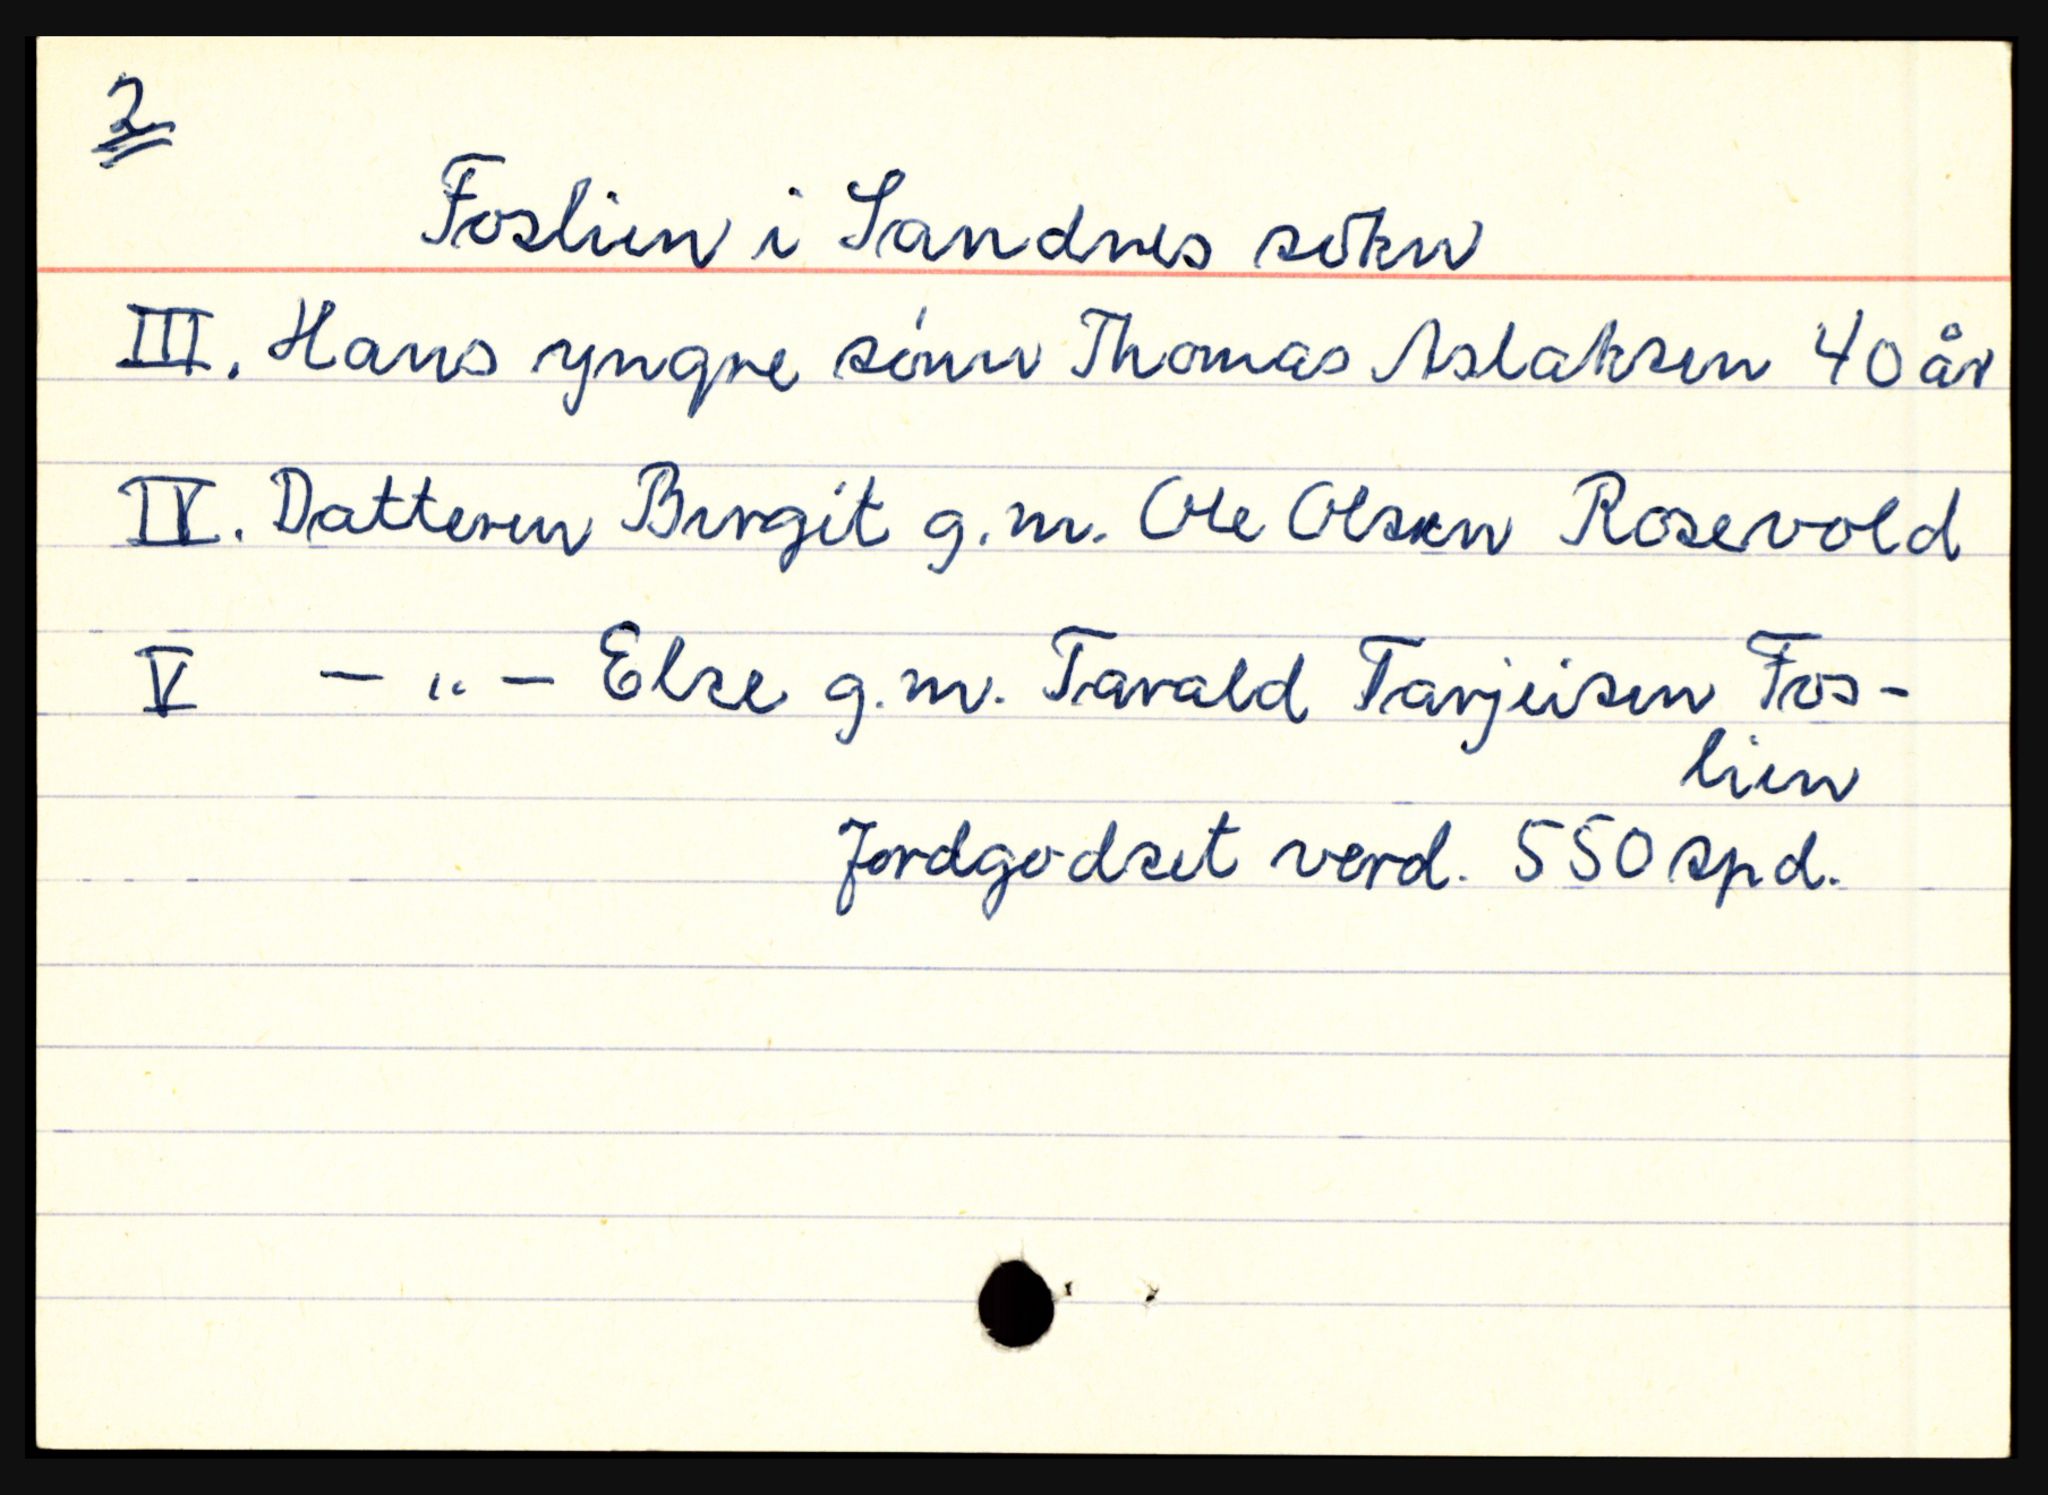 2
Foslien i Sandnes sókn
III. Hans yngre sónn Thomas Aslaksen 40 år
IV. Datteren Birgit g.m. Ole Olsen Rosevold
V — " — Else g.m. Tarald Tarjeisen Fos-
lien
Jordgodset verd. 550 spd.